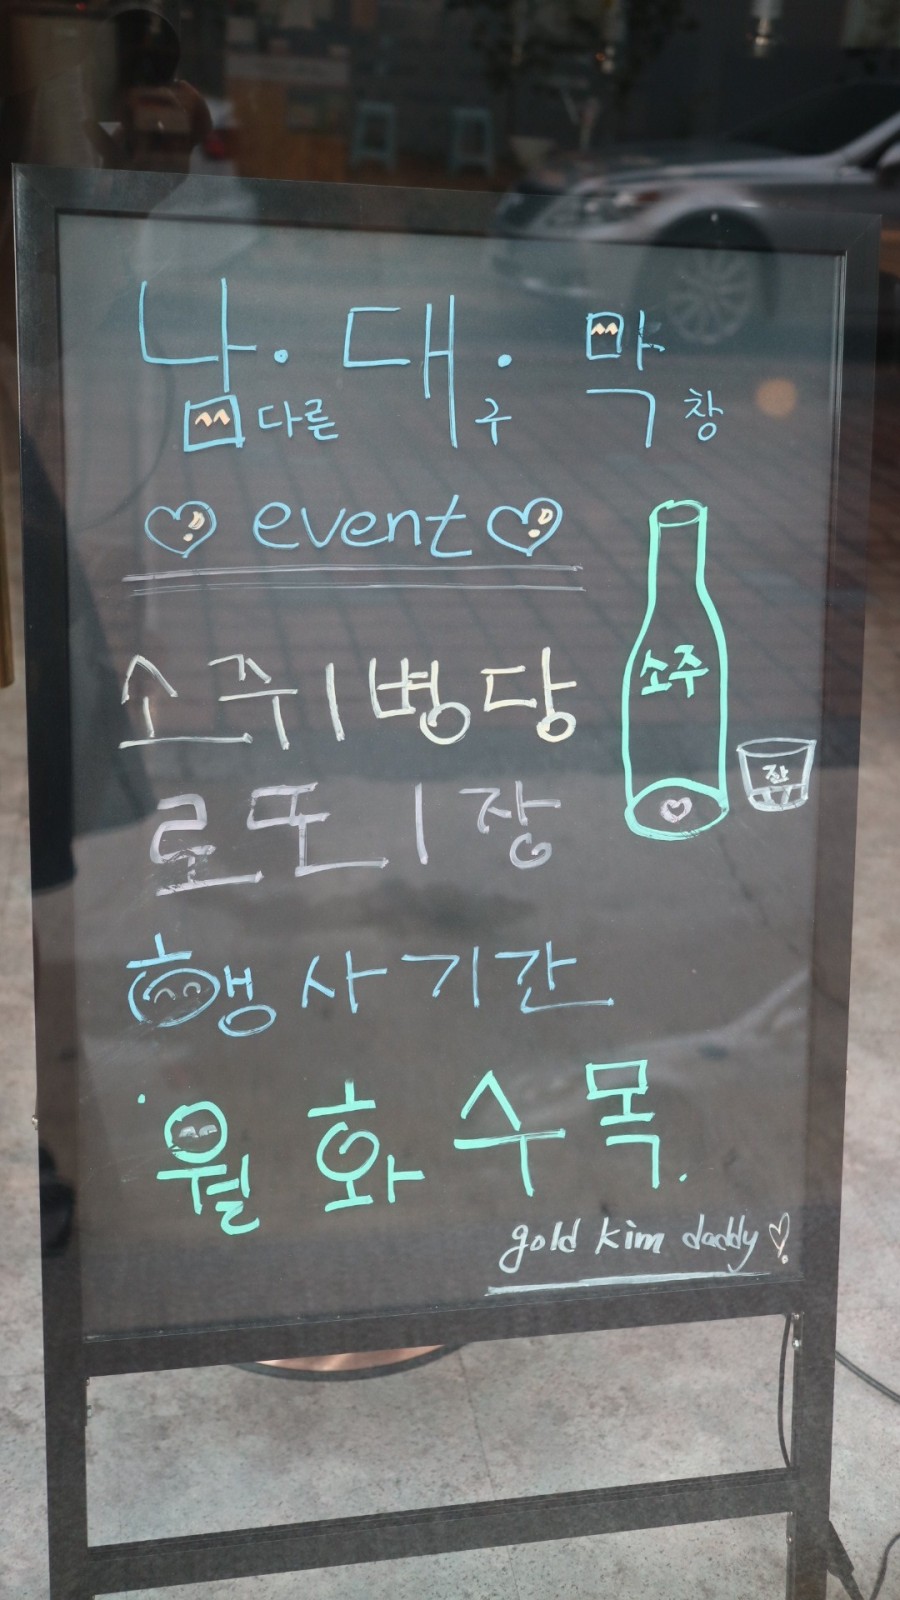 남·대·막
다른 구 창
event
소주1병당
로또1장
소주
짠
행사기간
월화수목.
gold kim daddy